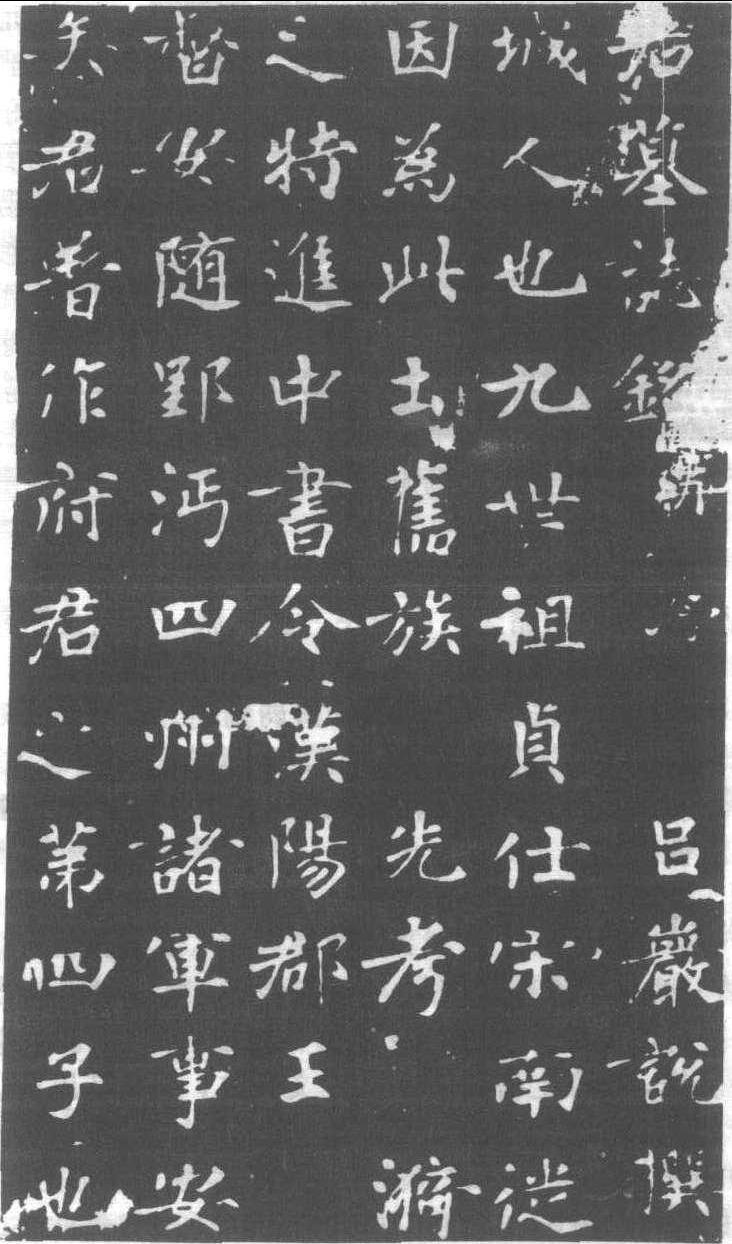 君墓誌銘并序 吕巖説撰
城人也九世祖貞仕宋南徙
因為此土舊族 先考 漪
之特進中書令漢陽郡王
督安随郢沔四州諸軍事安
矣君著作府君之第四子也